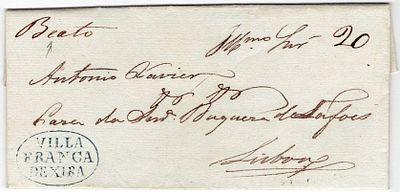 Beato
Illmo Snr 20
Antonio Xavier
Caza da Snrª Duqueza de Lafoes
Lisboa
VILLA
FRANCA
DE XIRA